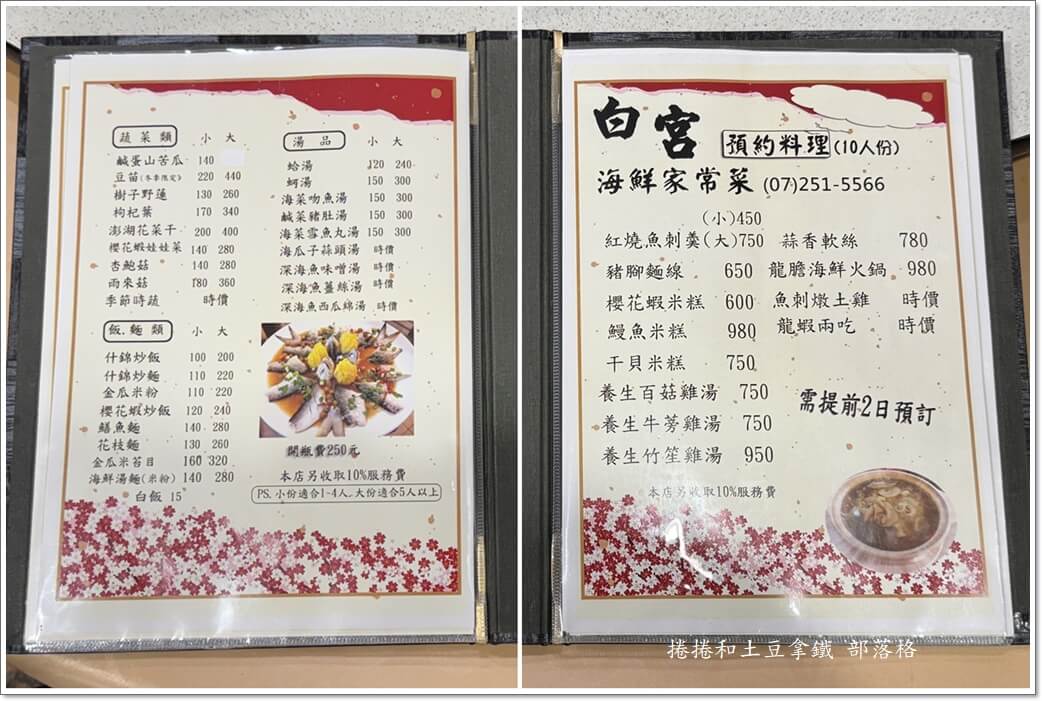 蔬菜類 小 大
鹹蛋山苦瓜 140
豆苗(冬季限定) 220 440
樹子野蓮 130 260
枸杞葉 170 340
澎湖花菜干 200 400
櫻花蝦娃娃菜 140 280
杏鮑菇 140 280
雨來菇 180 360
季節時蔬 時價
飯.麵類 小 大
什錦炒飯 100 200
什錦炒麵 110 220
金瓜米粉 110 220
櫻花蝦炒飯 120 240
鱔魚麵 140 280
花枝麵 130 260
金瓜米苔目 160 320
海鮮湯麵(米粉) 140 280
白飯 15
湯品 小 大
蛤湯 120 240
蚵湯 150 300
海菜吻魚湯 150 300
鹹菜豬肚湯 150 300
海菜雪魚丸湯 150 300
海瓜子蒜頭湯 時價
深海魚味噌湯 時價
深海魚薑絲湯 時價
深海魚西瓜綿湯 時價
開瓶費250元
本店另收取10%服務費
PS.小份適合1~4人.大份適合5人以上
白宮 預約料理(10人份)
海鮮家常菜 (07)251-5566
(小)450
紅燒魚刺羹(大)750 蒜香軟絲 780
豬腳麵線 650 龍膽海鮮火鍋 980
櫻花蝦米糕 600 魚刺燉土雞 時價
鰻魚米糕 980 龍蝦兩吃 時價
干貝米糕 750
養生百菇雞湯 750
養生牛蒡雞湯 750
養生竹笙雞湯 950
需提前2日預訂
本店另收取10%服務費
捲捲和土豆拿鐵 部落格